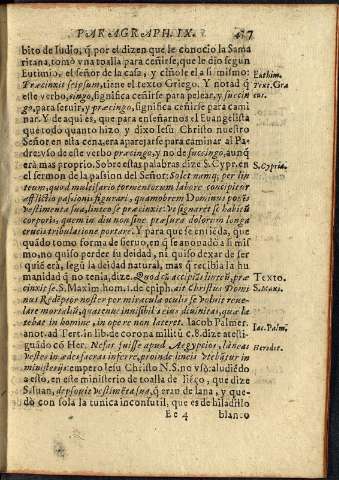 PARAGRAPH. IX.
bito de Iudio, q̃ por el dizen que le conocio la Sama
ritana, tomò vna toalla para ceñirse, que le dio segun
Eutimio, el señor de la casa, y ciñole el a si mismo:
Euthim.
Præcinxit seipsum, tiene el texto Griego. Y notad q̃
Text. Gra
este verbo, cingo, significa ceñirse para pelear, y succin
cus.
go, para seruir, y præcingo, significa ceñirse para cami
nar. Y de aqui es, que para enseñarnos el Euangelista
que todo quanto hizo y dixo Iesu Christo nuestro
Señor en esta cena, era aparejarse para caminar al Pa
dre: vsò de este verbo præcingo, y no de succingo, aunq̃
era mas proprio. Sobre estas palabras dize S. Cypr. en
S. Cypria.
el sermon de la passion del Señor: Solet namq; per lin
teum, quod multifario tormentorum labore conficitur
afflictio passionis figurari, quam ob rem Dominus positis
vestimenta sua, linteo se præcinxit: Vt signaret se habitũ
corporis, quem in diu non sine præssura dolorum longa
crucis tribulatione portare. Y para que se entiẽda, que
quãdo tomo forma de sieruo, en q̃ se anonadò a si mis
mo, no quiso perder su deidad, ni quiso dexar de ser
quiẽ era, segũ la deidad natural, mas q̃ recibia à la hu
manidad q̃ no tenia, dize. Quod cũ accepisset linteũ, præ
Texto.
cinxit se. S. Maxim. hom. 1. de epiph. ait Christus Domi
S. Maxi.
nus Redẽptor noster per miracula oculis se voluit reue-
lare mortaliũ, quatenus inuisibilis eius diuinitas, quæ la
tebat in homine, in opere non lateret. Iacob Palmer.
Iac. Palm.
anot. ad Tert. in lib. de corona militũ c. 8. dize atesti-
guãdo cõ Her. Nefas fuisse apud Aegypcios, laneas
Herodot.
vestes in ædes sacras inferre, proinde lineis vtebãtur in
ministerijs: empero Iesu Christo N. S. no vsò: aludiẽdo
a esto, en este ministerio de toalla de liẽço, que dize
S. Iuan, deposuit vestimẽta sua, q̃ erau de lana, y que-
dò con sola la tunica inconsutil, que es de hiladillo
Ee 4 blanco